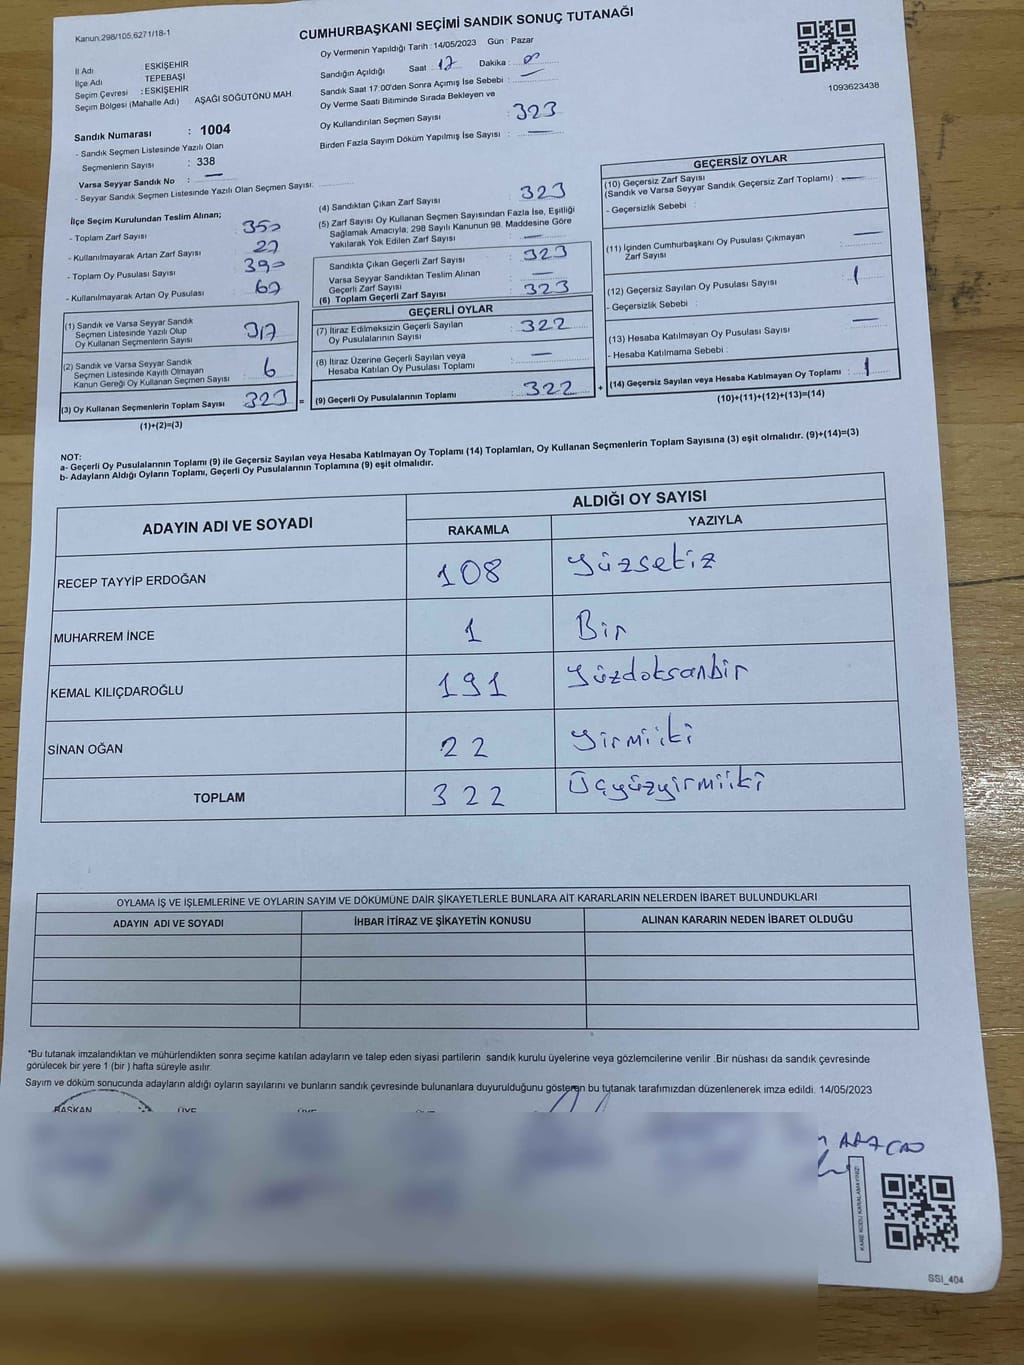 Kanun:298/105,6271/18-1
CUMHURBAŞKANI SEÇİMİ SANDIK SONUÇ TUTANAĞI
İl Adı ESKİŞEHİR
İlçe Adı TEPEBAŞI
Seçim Çevresi : ESKİŞEHİR
Seçim Bölgesi (Mahalle Adı) AŞAĞI SÖĞÜTÖNÜ MAH.
Sandık Numarası : 1004
- Sandık Seçmen Listesinde Yazılı Olan
Seçmenlerin Sayısı : 338
Varsa Seyyar Sandık No : —
- Seyyar Sandık Seçmen Listesinde Yazılı Olan Seçmen Sayısı:
Oy Vermenin Yapıldığı Tarih : 14/05/2023 Gün : Pazar
Sandığın Açıldığı Saat : 17 Dakika :
Sandık Saat 17:00'den Sonra Açımış İse Sebebi : —
Oy Verme Saati Bitiminde Sırada Bekleyen ve
Oy Kullandırılan Seçmen Sayısı : 323
Birden Fazla Sayım Döküm Yapılmış İse Sayısı : —
1093623438
İlçe Seçim Kurulundan Teslim Alınan;
- Toplam Zarf Sayısı : 350
- Kullanılmayarak Artan Zarf Sayısı : 27
- Toplam Oy Pusulası Sayısı : 390
- Kullanılmayarak Artan Oy Pusulası : 67
(1) Sandık ve Varsa Seyyar Sandık
Seçmen Listesinde Yazılı Olup
Oy Kullanan Seçmenlerin Sayısı : 317
(2) Sandık ve Varsa Seyyar Sandık
Seçmen Listesinde Kayıtlı Olmayan
Kanun Gereği Oy Kullanan Seçmen Sayısı : 6
(3) Oy Kullanan Seçmenlerin Toplam Sayısı : 323 =
(1)+(2)=(3)
(4) Sandıktan Çıkan Zarf Sayısı : 323
(5) Zarf Sayısı Oy Kullanan Seçmen Sayısından Fazla İse, Eşitliği
Sağlamak Amacıyla, 298 Sayılı Kanunun 98. Maddesine Göre
Yakılarak Yok Edilen Zarf Sayısı : —
Sandıkta Çıkan Geçerli Zarf Sayısı : 323
Varsa Seyyar Sandıktan Teslim Alınan
Geçerli Zarf Sayısı : —
(6) Toplam Geçerli Zarf Sayısı : 323
GEÇERLİ OYLAR
(7) İtiraz Edilmeksizin Geçerli Sayılan
Oy Pusulalarının Sayısı : 322
(8) İtiraz Üzerine Geçerli Sayılan veya
Hesaba Katılan Oy Pusulası Toplamı : —
(9) Geçerli Oy Pusulalarının Toplamı : 322 +
GEÇERSİZ OYLAR
(10) Geçersiz Zarf Sayısı
(Sandık ve Varsa Seyyar Sandık Geçersiz Zarf Toplamı) : —
- Geçersizlik Sebebi :
(11) İçinden Cumhurbaşkanı Oy Pusulası Çıkmayan
Zarf Sayısı : —
(12) Geçersiz Sayılan Oy Pusulası Sayısı : 1
- Geçersizlik Sebebi :
(13) Hesaba Katılmayan Oy Pusulası Sayısı : —
- Hesaba Katılmama Sebebi :
(14) Geçersiz Sayılan veya Hesaba Katılmayan Oy Toplamı : 1
(10)+(11)+(12)+(13)=(14)
NOT:
a- Geçerli Oy Pusulalarının Toplamı (9) ile Geçersiz Sayılan veya Hesaba Katılmayan Oy Toplamı (14) Toplamları, Oy Kullanan Seçmenlerin Toplam Sayısına (3) eşit olmalıdır. (9)+(14)=(3)
b- Adayların Aldığı Oyların Toplamı, Geçerli Oy Pusulalarının Toplamına (9) eşit olmalıdır.
ADAYIN ADI VE SOYADI ALDIĞI OY SAYISI
RAKAMLA YAZIYLA
RECEP TAYYİP ERDOĞAN 108 Yüzsekiz
MUHARREM İNCE 1 Bir
KEMAL KILIÇDAROĞLU 191 Yüzdoksanbir
SİNAN OĞAN 22 Yirmiiki
TOPLAM 322 Üçyüzyirmiiki
OYLAMA İŞ VE İŞLEMLERİNE VE OYLARIN SAYIM VE DÖKÜMÜNE DAİR ŞİKAYETLERLE BUNLARA AİT KARARLARIN NELERDEN İBARET BULUNDUKLARI
ADAYIN ADI VE SOYADI İHBAR İTİRAZ VE ŞİKAYETİN KONUSU ALINAN KARARIN NEDEN İBARET OLDUĞU
*Bu tutanak imzalandıktan ve mühürlendikten sonra seçime katılan adayların ve talep eden siyasi partilerin sandık kurulu üyelerine veya gözlemcilerine verilir .Bir nüshası da sandık çevresinde
görülecek bir yere 1 (bir ) hafta süreyle asılır
Sayım ve döküm sonucunda adayların aldığı oyların sayılarını ve bunların sandık çevresinde bulunanlara duyurulduğunu gösteren bu tutanak tarafımızdan düzenlenerek imza edildi. 14/05/2023
BAŞKAN ÜYE ÜYE
KARE KODU KARALAMAYINIZ!
SSİ_404